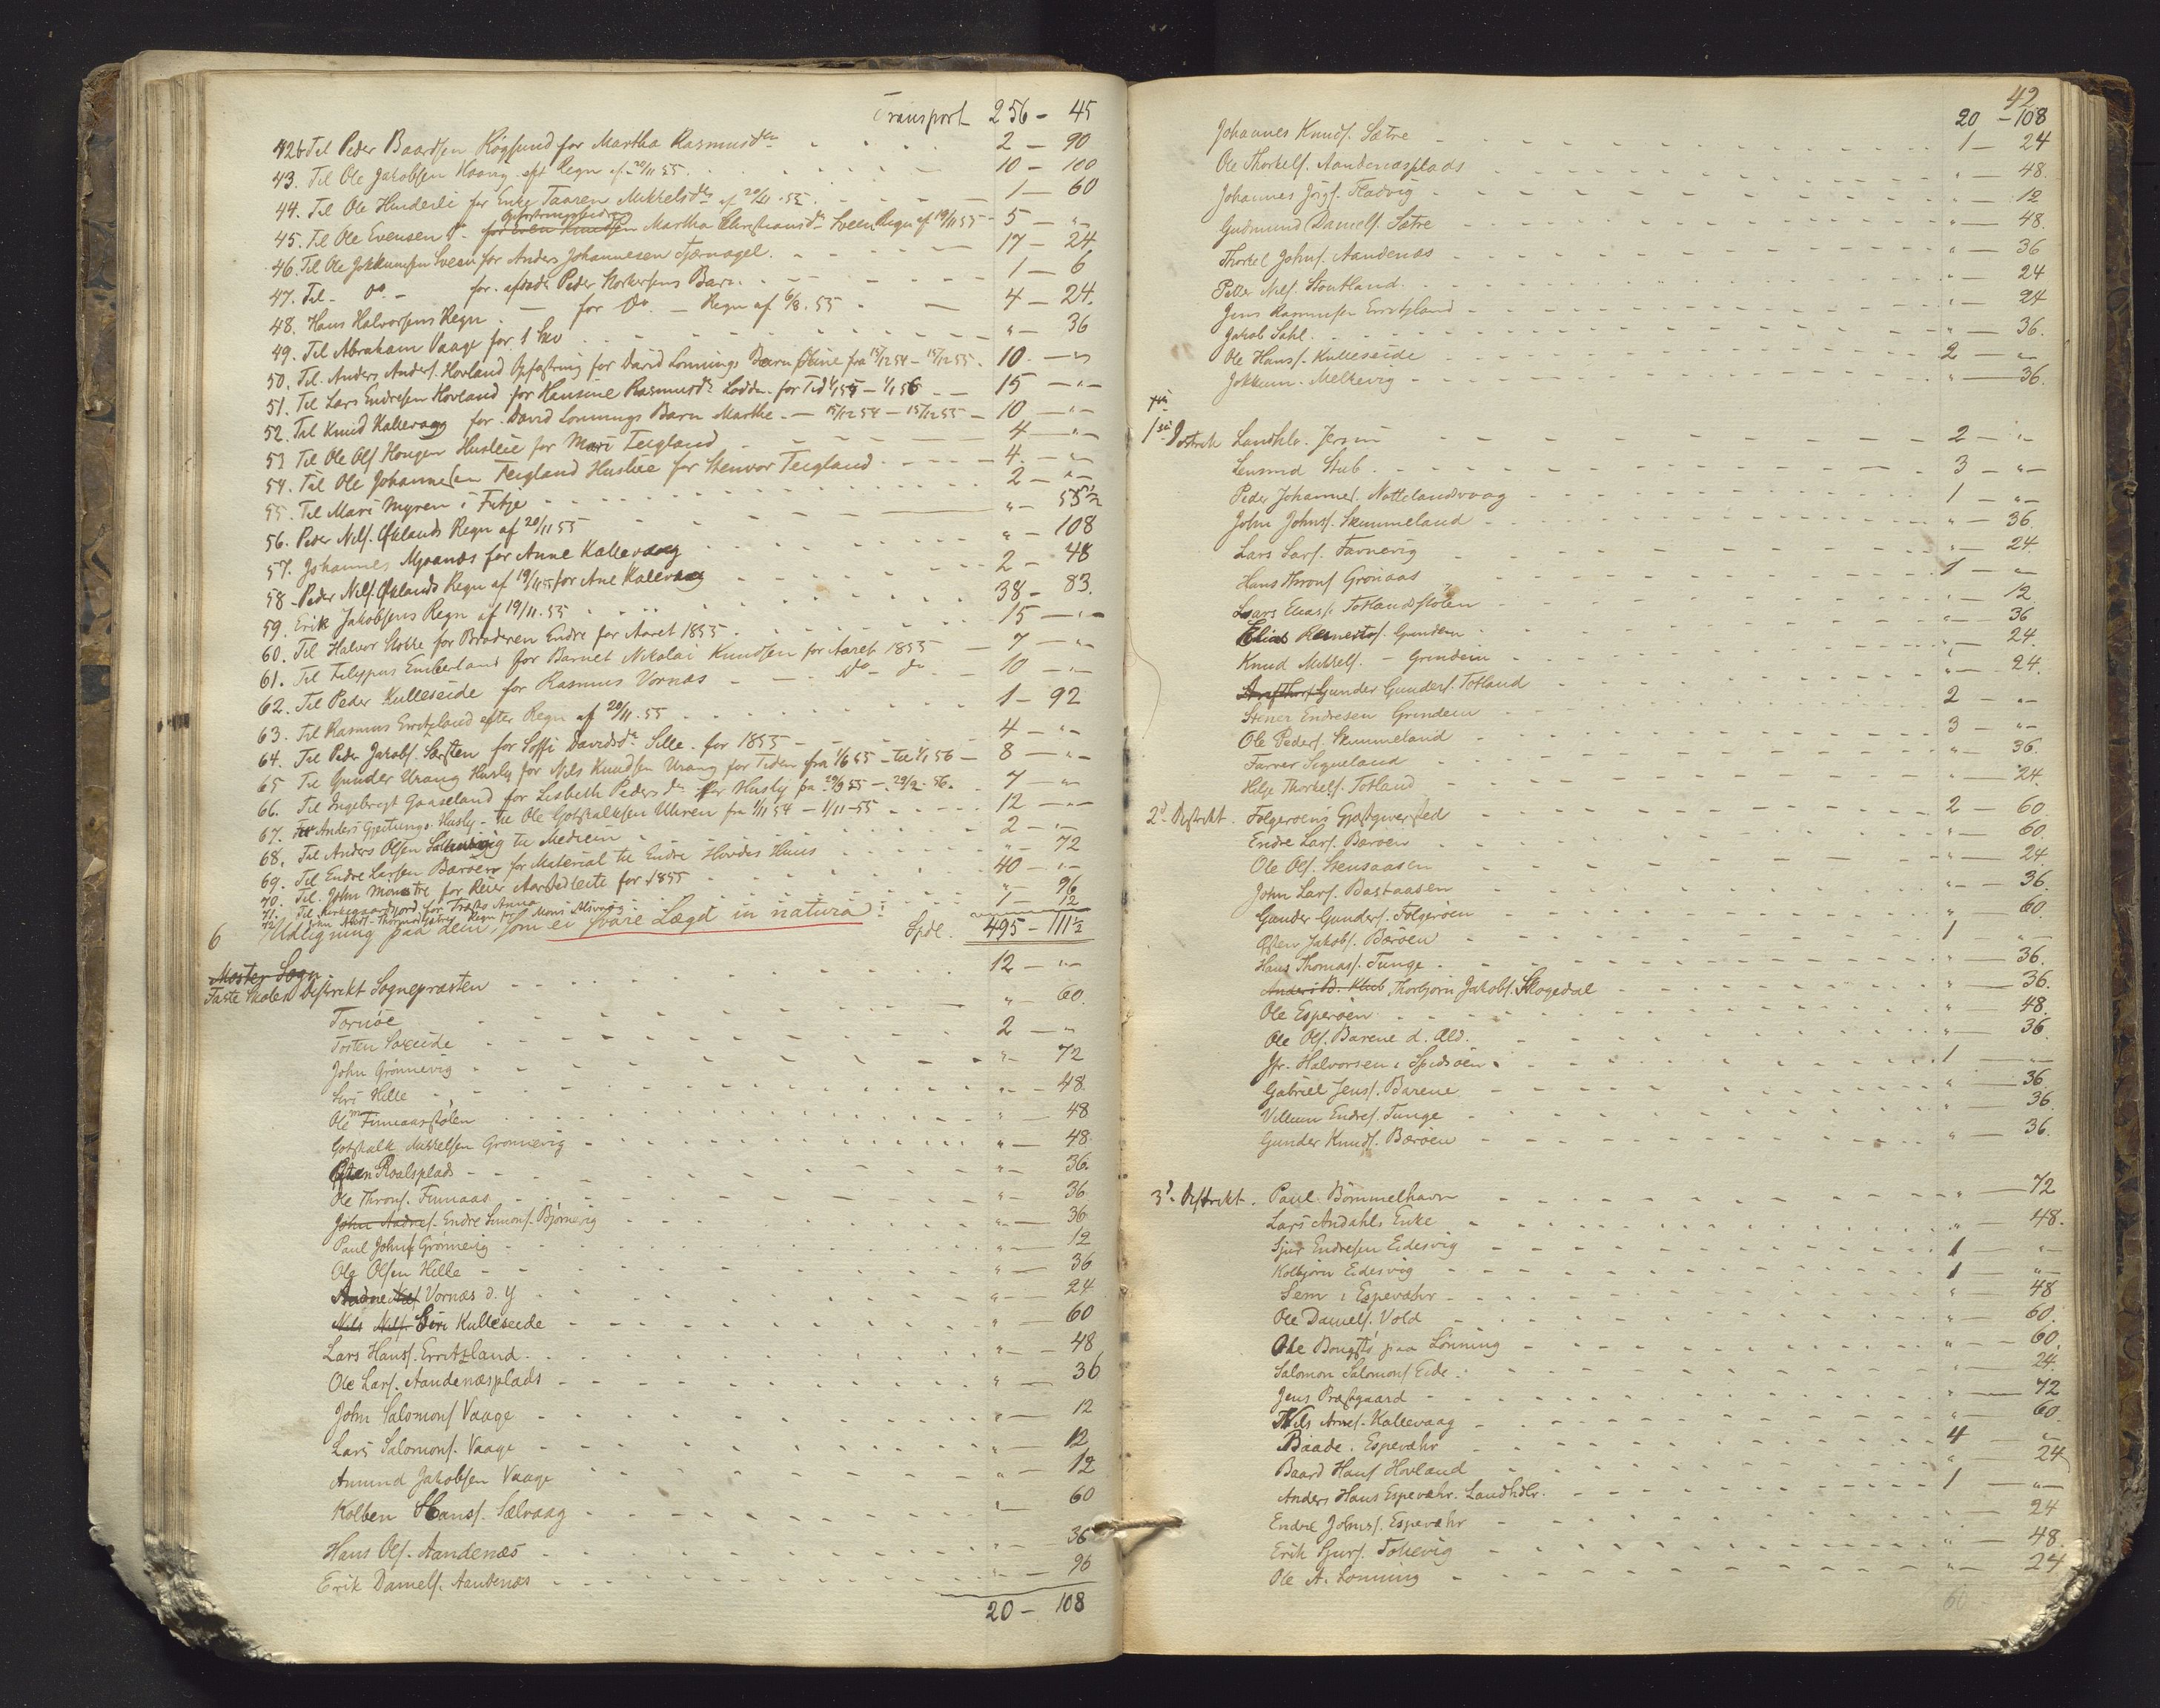 Transport 256 - 45
426 Til Peder Baardsen Røgsund for Martha Rasmusdtr 2 - 90
43. Til Ole Jakobsen eft Regn af 20/11 55. 10 - 100
44. Til Ole Hinderli for Enke Taaren Mikkelsdtr af 20/11 . 55. 1 - 60
45. Til Ole Evensen for Even Knudsen Martha Christiansdr Sveen Regn af 19/11 55 - 5 - "
46. Til Ole Jokkumsen Sveen for Anders Johannesen Tjernagel. 17 - 24
47. Til - Do. - for afdøde Peder Barn. 1 - 6
48. Hans Halvorsens Regn. - for Do. - Regn af 6/8. 55. 4 - 24.
49. Til Abraham Vaage for 1 " - 36
50. Til Anders Anders. Hovland Opfostring for David Lønnings Barn Stine fra 15/12 54 - 15/12 55. 10. - "
51. Til Lars Endresen Hovland for Hansine Rasmusdr Lodden for Tid 1/1 55 - 1/1 56 15 - "
52. Til Knud Kallevaag for David Lønnings Barn Marthe. - 15/12 54 - 15/12 55 10 - "
53 Til Ole Ols. Haugen Husleie for Mari Teigland 4 - "
54. Til Ole Johannesen Teigland Husleie for Stenvor Teigland 4. - "
55. Til Mari Myren i Fitje 2 - "
56. Peder Nils. Øklands Regn af 20/11 55 " - 55 1/2
57. Johannes Mosnæs for Anne Kallevaag " - 108
58 - Peder Nils. Øklands Regn af 19/11 55 for Ane Kallevaag 2 - 48
59. Erik Jakobsens Regn af 19/11. 55 38 - 83.
60. Til Halvor Stokke for Broderen Endre for Aaret 1855. 15 - "
61. Til Filippus Emberland for Barnet Nikolai Knudsen for Aaret 1855 7 - "
62. Til Peder Kulleseide for Rasmus Vornæs - do - do 10 - "
63. Til Rasmus Erritzland efter Regn af 20/11. 55 1 - 92
64. Til Peder Jakobs. Sørsten for Soffi Davidsdr Sille. for 1855 4 - "
65 Til Gunder Urang Husly for Nils Knudsen Urang for Tiden fra 1/6 55 - til 1/1 56 8 - "
66. Til Ingebregt Gaaseland for Lisbeth Pedersdr for Husly fra 29/9 55 - 29/2 56. 7 - "
67. Til Anders Gjeitungs Husly - til Ole Gotskalksen Uhren fra 1/11 54 - 1/11 - 55 12 - "
68. Til Anders Olsen til Medicin 2 - "
69. Til Endre Larsen Børøen for Material til Endre Hovdes Huus " - 72
70. Til John Mønstre for Reier Aarbedleite for 1855 40 - "
71. Til Kirkegaardsjord for Anna " - 96
72 Regn for Mons Alsvaag 1 - 12
6 Udligning paa dem, som ei svare Lægd in natura: Spdl. 495 - 111 1/2
Moster Sogn
Faste Skolen Distrikt Sognepræsten 12 - "
Tornøe " - 60.
Tosten Søreide 2 - "
John Grønnevig " - 72
Siri Hille " - 48.
Ole Finnaasstølen " - 48
Gotskalk Mikkelsen Grønnevig " - 48.
Østen Roalsplads " - 36.
Ole Throns. Finnaas " - 36
John Aadnes. Endre Simons. Bjørnevig " - 36
Paul Johns. Grønnevig " - 12
Ole Olsen Hille " - 36
Aadne Nils. Vornæs d. y " - 24
Nils Nils. Siri Kulleseide " - 60
Lars Hanss. Erritzland " - 48
Ole Lars. Aandenæsplads " - 36
John Salomons Vaage " - 12
Lars Salomons. Vaage " - 12
Amund Jakobsen Vaage " - 12
Kolben Hanss. Sælvaag " - 60
Hans Ols. Aandenæs " - 36
Erik Daniels. Aandenæs " - 96
20 - 108
42
20 - 108
Johannes Knuds. Sætre 1 - 24
Ole Thorkels. Aandenæsplads " - 48.
Johannes Fladvig " - 12
Gudmund Daniels. Sætre " - 48.
Thorkel Johns. Aandenæs " - 36
Peder Nils. Stoutland " - 24
Jens Rasmussen Erritzland " - 24
Jakob Sahl " - 36.
Ole Hanss. Kulleseide 2 - "
Jokkum Melkevig " - 36.
1ste Distrikt Landhlr. Jersin 2 - "
Lensmd Stub 3 - "
Peder Johannes. Nottelandsvaag 1 - "
John Johns. Skimmeland " - 36.
Lars Lars. Favnevig " - 24
Hans Throns Grønaas 1 - "
Lars Elias. Totlandsstølen " - 12
Elias Grindem " - 36
Knud Mikkels. - Grindem " - 24.
Gunder Gunders. Totland " - 24.
Stener Endresen Grindem 2 - "
Ole Peders. Skimmeland 3 - "
Farver Siqueland " - 36.
Helje Thorkels. Totland " - 24.
2d Distrikt. Folgerøens Gjæstgiversted 2 - 60
Endre Lars. Børøen " - 60.
Ole Ols. Stensaasen " - 24.
John Lars. Bastaasen " - 36.
Gunder Gunders. Folgerøen " - 60.
Østen Jakobs. Børøen 1 - "
Hans Thomass. Tunge " - 36.
Anders B. Klub Thorbjørn Jakobs. Skogedal " - 36.
Ole Esperøen " - 48.
Ole Ols. Barene d. Æld. " - 36.
Jfr. Halvorsen i Spidsøen 1 - "
Gabriel Jens. Barene " - 36.
Villum Endres. Tunge " - 36.
Gunder Knuds. Børøen " - 36.
3d Distrikt. Paul Bømmelhavn " - 72
Lars Andahls Enke " - 48.
Sjur Endresen Eidesvig 1 - "
Kolbjørn Eidesvig 1 - "
Sem i Espevæhr " - 48
Ole Daniels. Vold " - 60.
Ole paa Lønning " - 60.
Salomon Salomons Eide " - 24.
Jens Præstgaard " - 72
Nils Arnes. Kallevaag " - 60.
Baade. Espevæhr 4 - "
Baard Hans Hovland " - 24
Anders Hans Espevæhr. Landhdlr. 1 - "
Endre Johns. Espevæhr " - 24
Erik Sjurs. Tollevig " - 48.
Ole A. Lønning " - 24